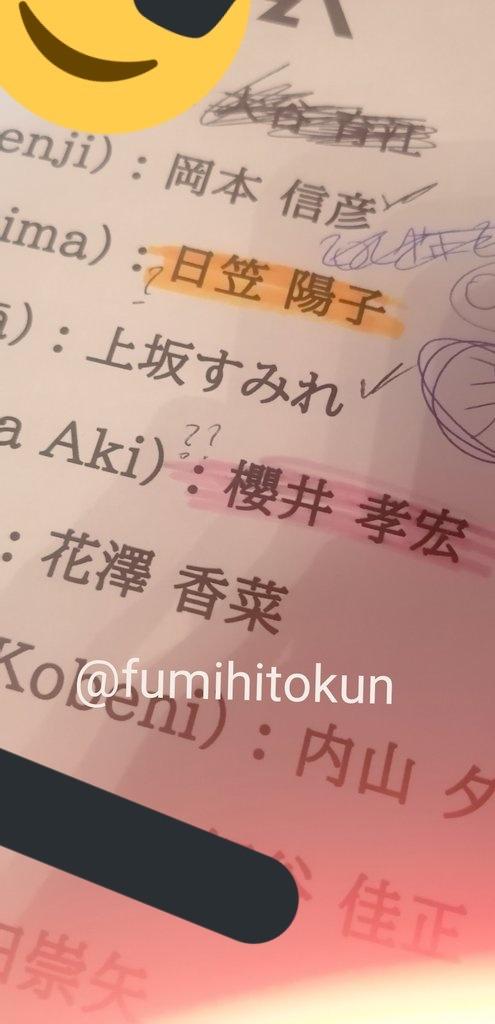 enji) : 岡本 信彦
ima) : 日笠 陽子
?
) : 上坂すみれ
??
a Aki) : 櫻井 孝宏
: 花澤 香菜
@fumihitokun
Kobeni) : 内山 夕
谷 佳正
田崇矢